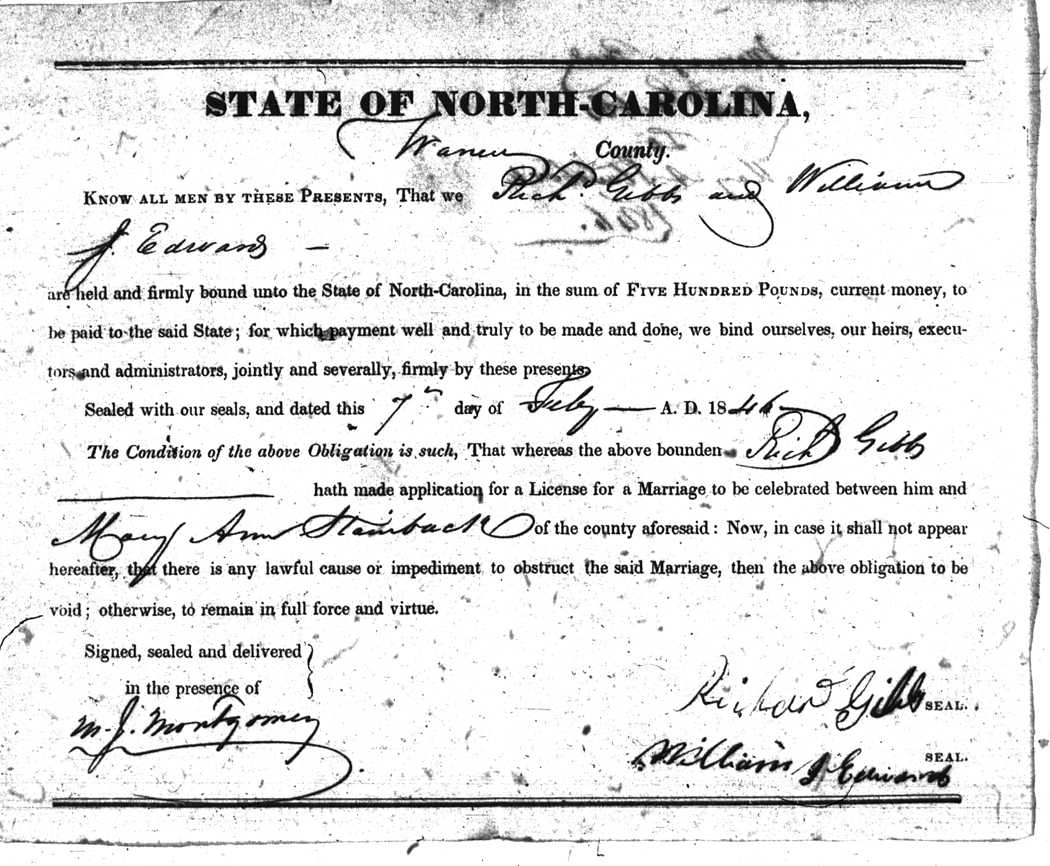 STATE OF NORTH-CAROLINA,
Warren County.
KNOW ALL MEN BY THESE PRESENTS, That we Richd Gibbs and William
J. Edwards —
are held and firmly bound unto the State of North-Carolina, in the sum of FIVE HUNDRED POUNDS, current money, to
be paid to the said State; for which payment well and truly to be made and done, we bind ourselves, our heirs, execu-
tors and administrators, jointly and severally, firmly by these presents.
Sealed with our seals, and dated this 7th day of Feby — A. D. 1846
The Condition of the above Obligation is such, That whereas the above bounden Richd Gibbs
hath made application for a License for a Marriage to be celebrated between him and
Mary Ann Stainback of the county aforesaid: Now, in case it shall not appear
hereafter, that there is any lawful cause or impediment to obstruct the said Marriage, then the above obligation to be
void; otherwise, to remain in full force and virtue.
Signed, sealed and delivered
in the presence of
M. J. Montgomery
Richard Gibbs SEAL.
William J Edwards SEAL.